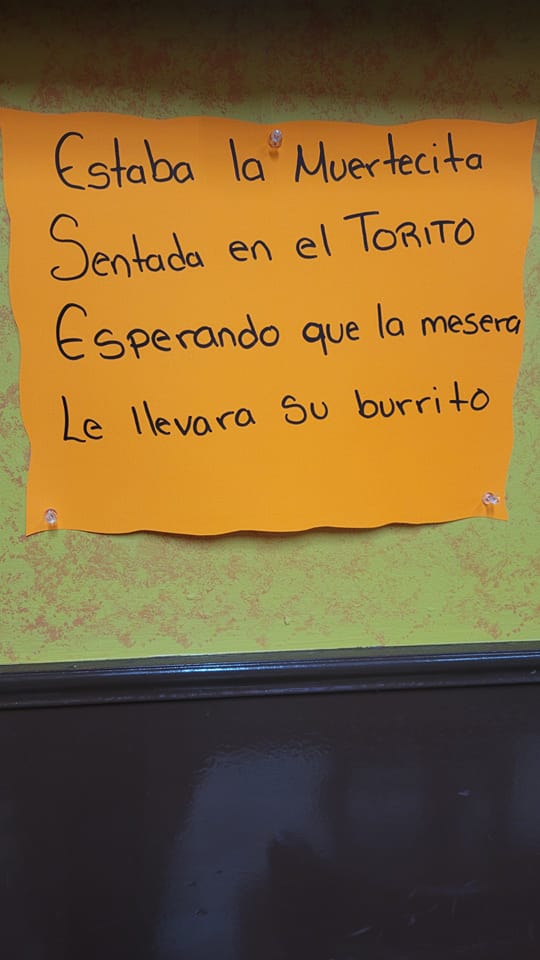 Estaba la Muertecita
Sentada en el TORITO
Esperando que la mesera
Le llevara su burrito